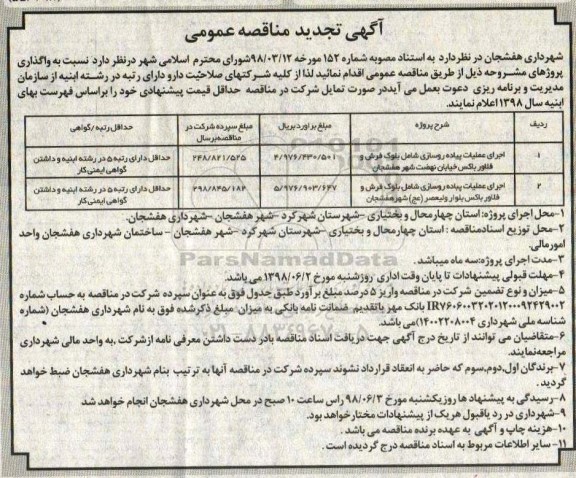 آگهی تجدید مناقصه عمومی
شهرداری هفشجان در نظر دارد به استناد مصوبه شماره ۱۵۲ مورخه ۹۸/۰۳/۱۲ شورای محترم اسلامی شهر در نظر دارد نسبت به واگذاری
پروژهای مشروحه ذیل از طریق مناقصه عمومی اقدام نمائید لذا از کلیه شرکتهای صلاحیت دارو دارای رتبه در رشته ابنیه از سازمان
مدیریت و برنامه ریزی دعوت بعمل می آید در صورت تمایل شرکت در مناقصه حداقل قیمت پیشنهادی خود را براساس فهرست بهای
ابنیه سال ۱۳۹۸ اعلام نمایند.
ردیف شرح پروژه مبلغ برآورد بریال مبلغ سپرده شرکت در مناقصه بریال حداقل رتبه/گواهی
۱ اجرای عملیات پیاده روسازی شامل بلوک فرش و فلاور باکس خیابان نهضت شهر هفشجان ۴/۹۷۶/۴۳۰/۵۰۱ ۲۴۸/۸۲۱/۵۲۵ حداقل دارای رتبه ۵ در رشته ابنیه و داشتن گواهی ایمنی کار
۲ اجرای عملیات پیاده روسازی شامل بلوک فرش و فلاور باکس بلوار ولیعصر (عج) شهر هفشجان ۵/۹۷۶/۹۰۳/۶۴۷ ۲۹۸/۸۴۵/۱۸۲ حداقل دارای رتبه ۵ در رشته ابنیه و داشتن گواهی ایمنی کار
۱-محل اجرای پروژه: استان چهارمحال و بختیاری –شهرستان شهرکرد –شهر هفشجان –شهرداری هفشجان.
۲-محل توزیع اسناد مناقصه : استان چهارمحال و بختیاری –شهرستان شهرکرد –شهر هفشجان – ساختمان شهرداری هفشجان واحد
امورمالی.
۳-مدت اجرای پروژه: سه ماه میباشد.
۴-مهلت قبولی پیشنهادات تا پایان وقت اداری روز شنبه مورخ ۱۳۹۸/۰۶/۲ می باشد.
۵-میزان و نوع تضمین شرکت در مناقصه واریز ۵ درصد مبلغ برآورد طبق جدول فوق به عنوان سپرده شرکت در مناقصه به حساب شماره
بانک مهر یا تقدیم ضمانت نامه بانکی به میزان مبلغ ذکر شده فوق به نام شهرداری هفشجان (شماره
شناسه ملی شهرداری ۱۴۰۰۲۲۰۸۰۰۴) می باشد.
۶-متقاضیان می توانند از تاریخ درج آگهی جهت دریافت اسناد مناقصه با در دست داشتن معرفی نامه از شرکت ،به واحد مالی شهرداری
مراجعه نمایند.
۷-برندگان اول،دوم،سوم که حاضر به انعقاد قرارداد نشوند سپرده شرکت در مناقصه آنها به ترتیب بنام شهرداری هفشجان ضبط خواهد
گردید .
۸-رسیدگی به پیشنهاد ها روز یکشنبه مورخ ۹۸/۰۶/۳ راس ساعت ۱۰ صبح در محل شهرداری هفشجان انجام خواهد شد
۹-شهرداری در رد یا قبول هریک از پیشنهادات مختار خواهد بود.
۱۰-هزینه چاپ و آگهی به عهده برنده مناقصه می باشد .
۱۱- سایر اطلاعات مربوط به اسناد مناقصه درج گردیده است .
ParsNamadData